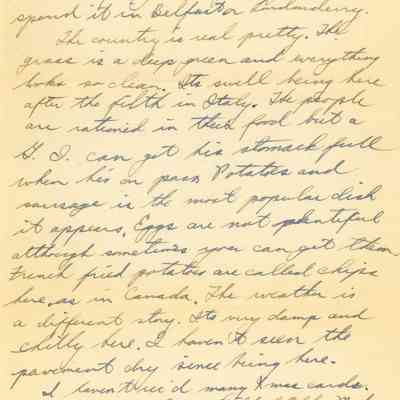 spend it in Belfast or Londonderry.
The country is real pretty. The
grass is a deep green and everything
looks so clean. Its swell being here
after the filth in Italy. The people
are rationed in their food but a
G. I. can get his stomach full
when he's on pass. Potatoes and
sausage is the most popular dish
it appears. Eggs are not plentiful
although sometimes you can get them
French fried potatoes are called chips
here, as in Canada. The weather is
a different story. Its very damp and
chilly here. I haven't seen the
pavement dry since being here.
I haven't rec'd many Xmas cards.